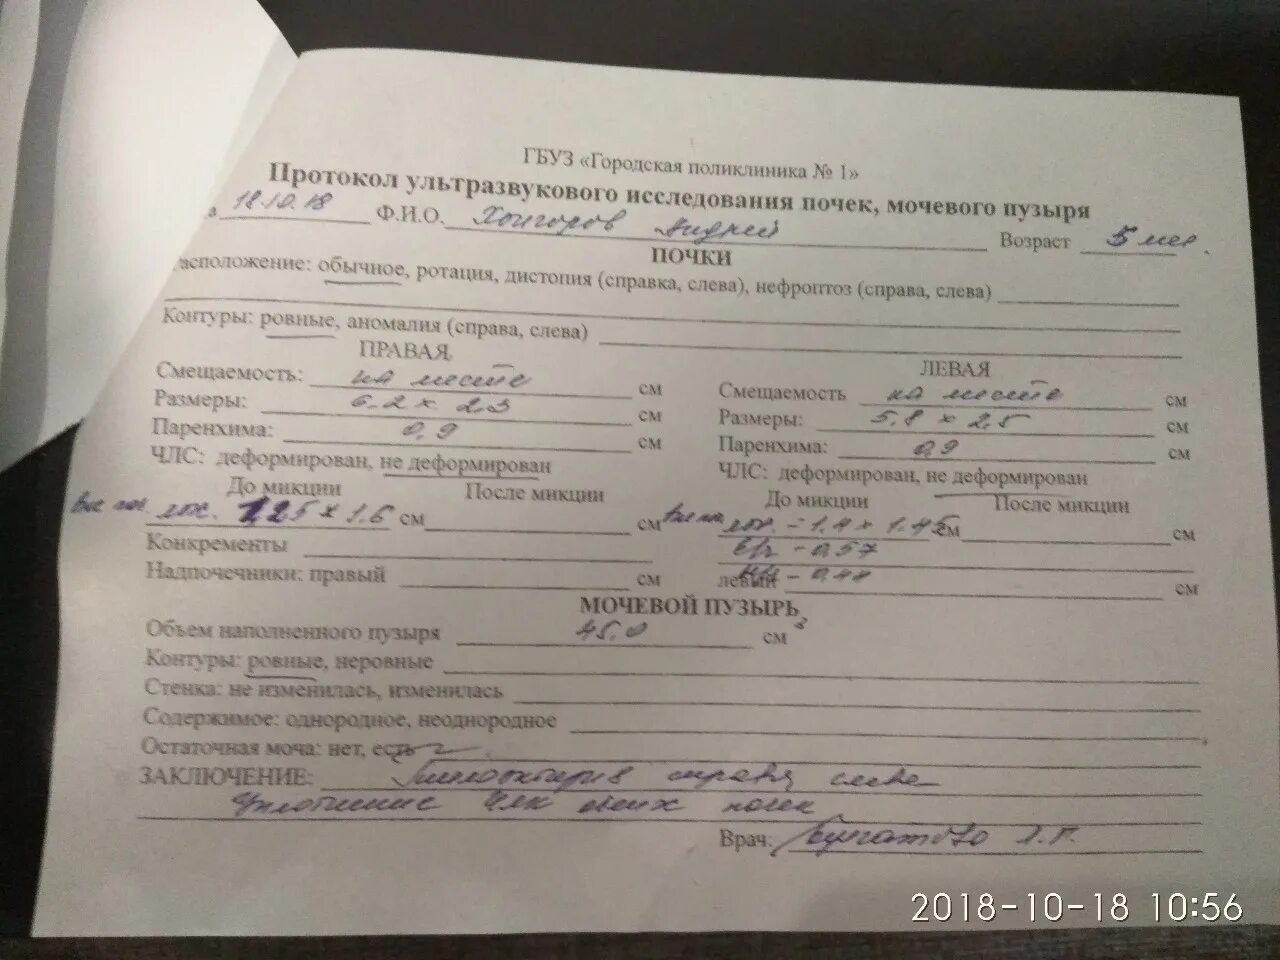 ГБУЗ «Городская поликлиника № 1»
Протокол ультразвукового исследования почек, мочевого пузыря
а 18.10.18 Ф.И.О. Хонгоров Андрей Возраст 5 мес.
ПОЧКИ
асположение: обычное, ротация, дистопия (справка, слева), нефроптоз (справа, слева)
Контуры: ровные, аномалия (справа, слева)
ПРАВАЯ ЛЕВАЯ
Смещаемость: на месте см Смещаемость на месте см
Размеры: 6.2 х 2.3 см Размеры: 5,8 х 2,5 см
Паренхима: 0,9 см Паренхима: 0,9 см
ЧЛС: деформирован, не деформирован ЧЛС: деформирован, не деформирован
До микции После микции До микции После микции
лох. 1.6 см см лох. - 1.4 х 1.45 см см
Конкременты - 0,57
Надпочечники: правый см левый - 0.44 см
МОЧЕВОЙ ПУЗЫРЬ
Объем наполненного пузыря 45.0 см3
Контуры: ровные, неровные
Стенка: не изменилась, изменилась
Содержимое: однородное, неоднородное
Остаточная моча: нет, есть
ЗАКЛЮЧЕНИЕ: Пиелоэктазия справа слева
Уплотнение ЧЛК обеих почек
Врач:
2018-10-18 10:56